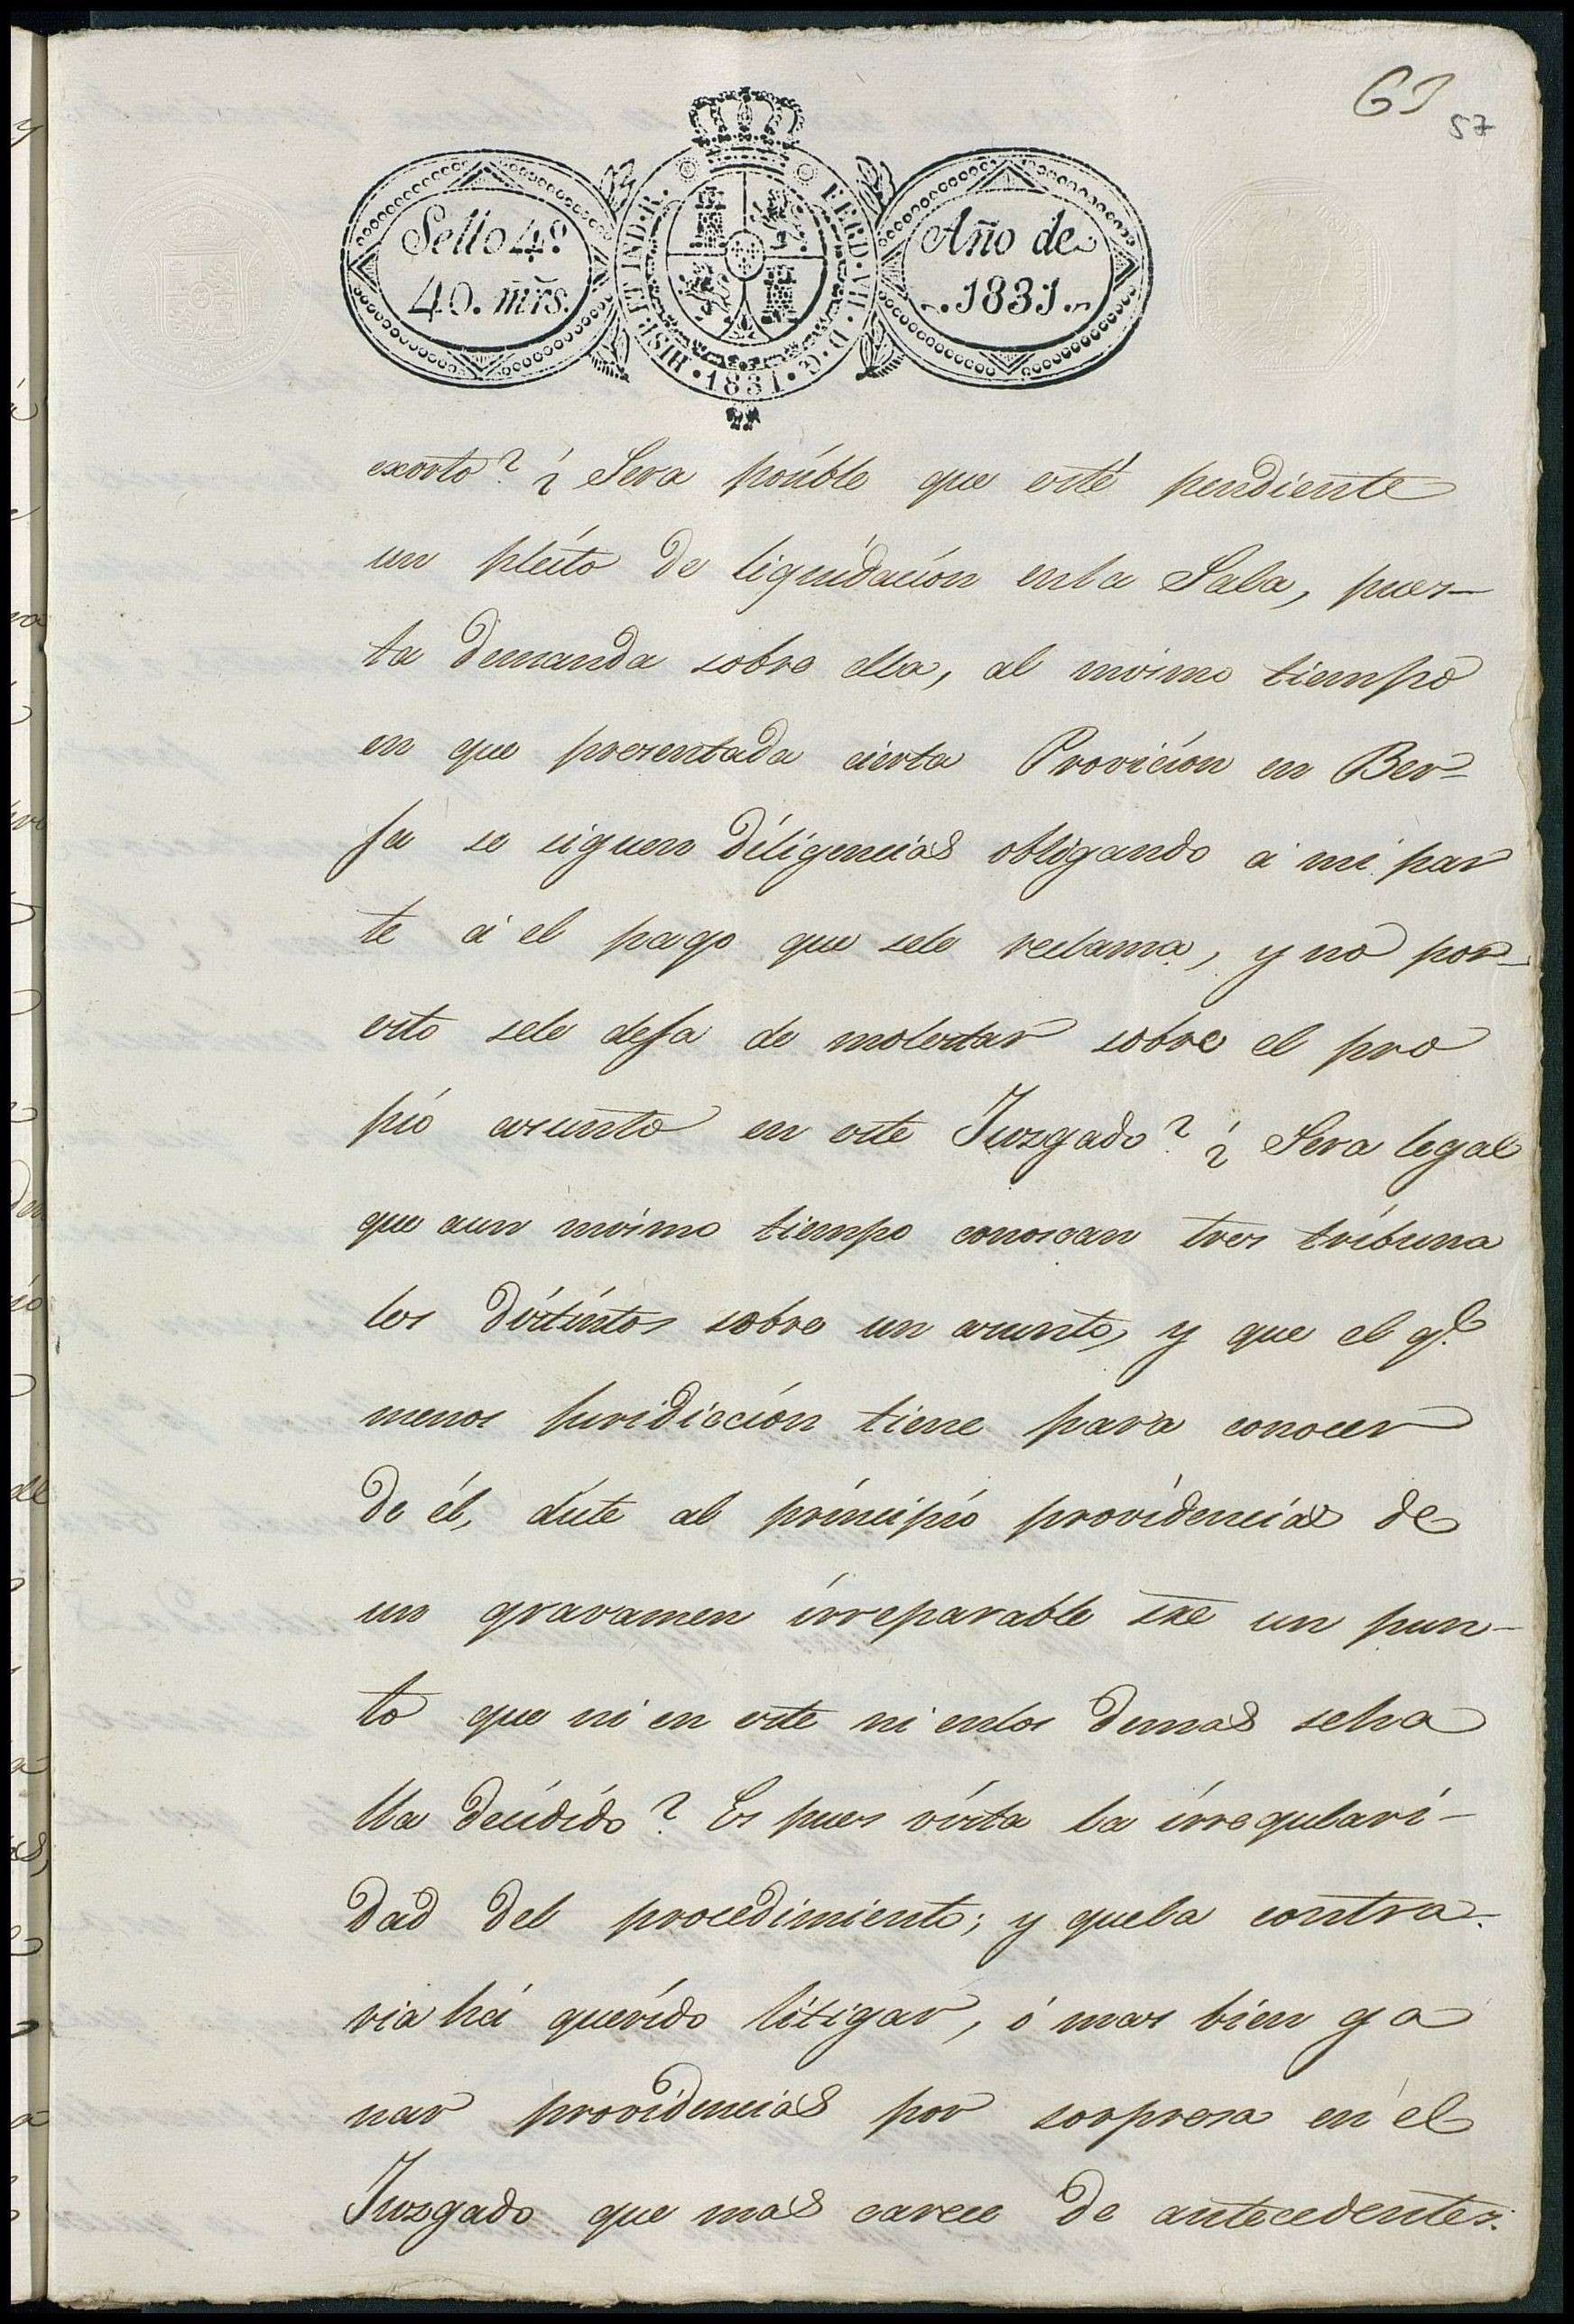 61
57
Sello 4º
40. mrs.
HISP. ET IND. R. FERD. VII. D. G. 1831.
Año de
1831.
exorto? ¿ Sera posible que esté pendiente
un pleito de liquidacion enla Sala, pues-
ta demanda sobre ella, al mismo tiempo
en que presentada cierta Provicion en Ber-
ja se siguen diligencias obligando á mi par
te á el pago que sele reclama, y no por
esto sele deja de molestar sobre el pro
pio asunto en este Juzgado? ¿ Sera legal
que aun mismo tiempo conoscan tres tribuna
les distintos sobre un asunto, y que el qe.
menos juridiccion tiene para conocer
de él, dicte al principio providencias de
un gravamen irreparable sre un pun-
to que ni en este ni enlos demas seha
lla decidido? Es pues vista la irregulari-
dad del procedimiento; y quela contra-
ria há querido litigar, ó mas bien ga
nar providencias por sorpresa en el
Juzgado que mas carece de antecedentes.